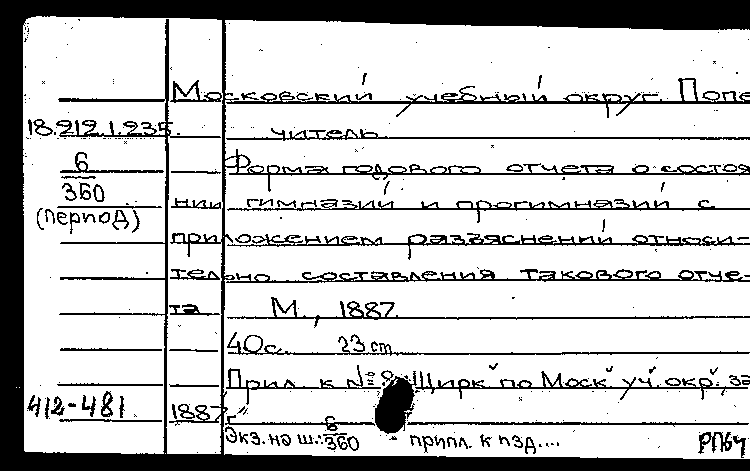 Московский учебный округ. Попе
18.212.1.235. читель.
6/360 Форма годового отчета о состоя
(период) нии гимназий и прогимназий с
приложением разъяснений относи-
тельно составления такового отче-
та М., 1887.
40с. 23 cm
Прил. к №8 Цирк. по Моск. уч. окр., за
412-481 1887 г.
Экз. на ш.: 6/360 - припл. к пзд....